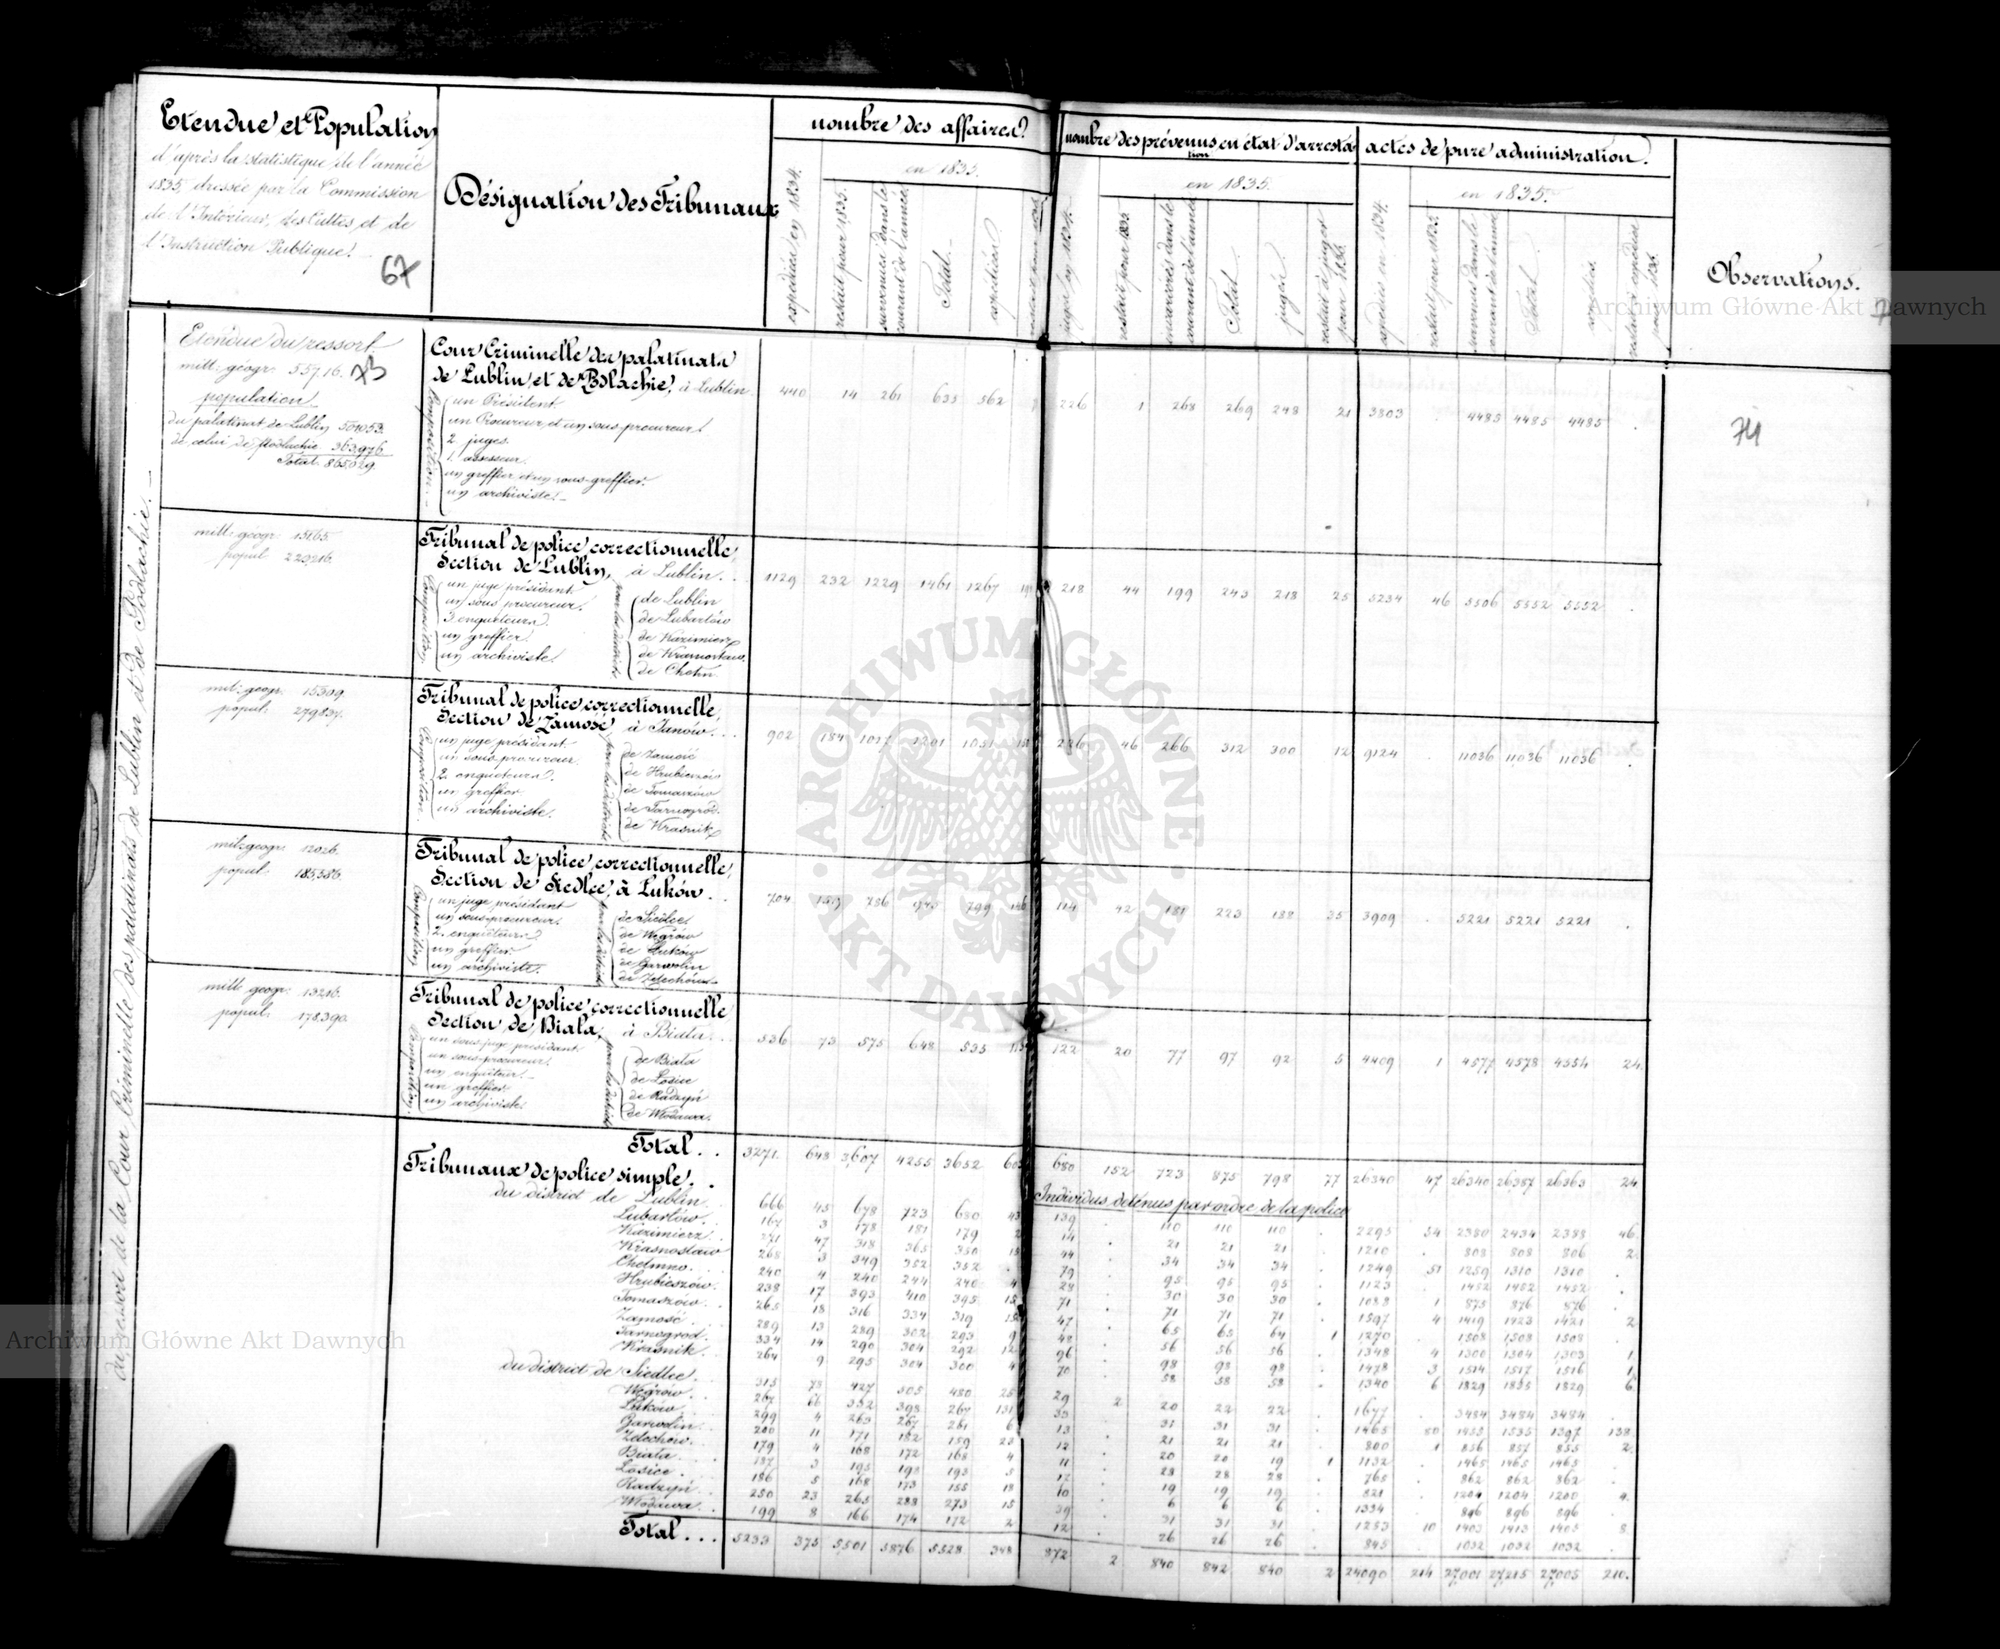 Etendue et Population
d'après la statistique de l'année
1835, dressée par la Commission
de l'Intérieur, des Cultes et de
l'Instruction Publique.
67
Désignation des Tribunaux
nombre des affaires
en 1835.
expédiées en 1834.
restait pour 1835.
survenues dans le courant de l'année
Total.
expédiées
nombre des prévenus en état d'arrestation
en 1835.
jugés en 1834.
restait pour 1835
incarcérés dans le courant de l'année
Total.
jugés
restait à juger pour 1836.
actes de pure administration.
en 1835.
expédiés en 1834.
restait pour 1835.
survenus dans le courant de l'année
Total.
Observations.
du ressort de la Cour Criminelle des palatinats de Lublin et de Podlachie.
Etendue du ressort
mill: géogr. 557,16.
73
population
du palatinat de Lublin 501053.
de celui de Podlachie 363,976.
Total. 865,029.
Cour Criminelle des palatinats
de Lublin et de Podlachie, à Lublin
Composition.
un Président.
un Procureur et un sous-procureur.
2. juges.
1. assesseur.
un greffier et un sous-greffier.
un archiviste.
440 14 261 635 562
226 1 268 269 248 21 3303 . 4485 4485 4485 .
74
mill: géogr. 151,65.
popul. 229,216.
Tribunal de police correctionnelle,
Section de Lublin, à Lublin.
Composition
un juge président.
un sous procureur.
3 enquêteurs.
un greffier.
un archiviste.
de Lublin
de Lubartów
de Kazimierz
de Krasnostaw
de Chełm
1129 232 1229 1461 1267
218 44 199 243 218 25 5234 46 5506 5552 5552 .
mil: géogr. 153,09.
popul: 279,837.
Tribunal de police correctionnelle,
Section de Zamość à Janów.
Composition.
un juge président.
un sous-procureur.
2. enquêteurs.
un greffier
un archiviste.
de Zamość
de Hrubieszów
de Tomaszów
de Tarnogród.
de Kraśnik
902 184 1017 1201 1051
226 46 266 312 300 12 9124 . 11036 11036 11036 .
mil: géogr. 120,26.
popul. 185,586.
Tribunal de police correctionnelle,
Section de Siedlce, à Łuków.
Composition.
un juge président
un sous-procureur.
2. enquêteurs
un greffier.
un archiviste.
de Siedlce.
de Węgrów
de Łuków
de Garwolin
de Żelechów
704 159 786 945 799 146
114 42 181 223 188 35 3909 . 5221 5221 5221 .
mill géogr: 132,16.
popul: 178,390.
Tribunal de police correctionnelle
Section de Biała, à Biała.
Composition.
un sous-juge président.
un sous-procureur.
un enquêteur.
un greffier
un archiviste.
de Biała
de Łosice
de Radzyń
de Włodawa.
536 73 575 648 535 113
122 20 77 97 92 5 4409 1 4577 4578 4554 24.
Total. . 3271. 648 3,607 4255 3652 603
680 152 723 875 798 77 26340 47 26340 26,387 26363 24
Tribunaux de police simple.
Individus détenus par ordre de la police
du district de Lublin 666 45 678 723 680 43 139 . 110 110 110 . 2295 54 2380 2434 2388 46.
Lubartów. 167 3 178 181 179 2 14 . 21 21 21 . 1210 . 808 808 806 2
Kazimierz. 271 47 318 365 350 15 44 . 34 34 34 . 1249 51 1259 1310 1310 .
Krasnostaw 268 3 349 352 352 . 79 . 95 95 95 . 1123 . 1452 1452 1452 .
Chełmno. 240 4 240 244 240 4 28 . 30 30 30 . 1088 1 875 876 876 .
Hrubieszów. 238 17 393 410 395 15 71 . 71 71 71 . 1597 4 1419 1423 1421 2
Tomaszów. 265 18 316 334 319 15 47 . 65 65 64 1 1270 . 1508 1508 1508 .
Zamość. 289 13 289 302 293 9 42 . 56 56 56 . 1348 4 1300 1304 1303 1
Tarnogrod. 334 14 290 304 292 12 96 . 98 98 98 . 1478 3 1514 1517 1516 1
Kraśnik. 264 9 295 304 300 4 70 . 58 58 58 . 1340 6 1829 1835 1829 6
du district de Siedlce. 315 78 427 505 480 25 29 2 20 22 22 . 1677 . 3484 3484 3484 .
Węgrów. 267 66 332 398 267 131 35 . 31 31 31 . 1465 80 1455 1535 1397 138
Łuków. 299 4 263 267 261 6 13 . 21 21 21 . 800 1 856 857 855 2
Garwolin. 200 11 171 182 159 23 12 . 20 20 19 1 1132 . 1465 1465 1465 .
Żelechów. 179 4 168 172 168 4 11 . 28 28 28 . 765 . 862 862 862 .
Biała. 187 3 195 198 193 5 12 . 19 19 19 . 821 . 1204 1204 1200 4
Łosice. 186 5 168 173 155 18 10 . 6 6 6 . 1334 . 896 896 896 .
Radzyń. 250 23 265 288 273 15 39 . 31 31 31 . 1253 10 1403 1413 1405 8
Włodawa. 199 8 166 174 172 2 12 . 26 26 26 . 845 . 1032 1032 1032 .
Total. . . 5233 375 5,501 5876 5528 348 872 2 840 842 840 2 24090 214 27,001 27,215 27,005 210.
Archiwum Główne Akt Dawnych
ARCHIWUM GŁÓWNE AKT DAWNYCH
Archiwum Główne Akt Dawnych